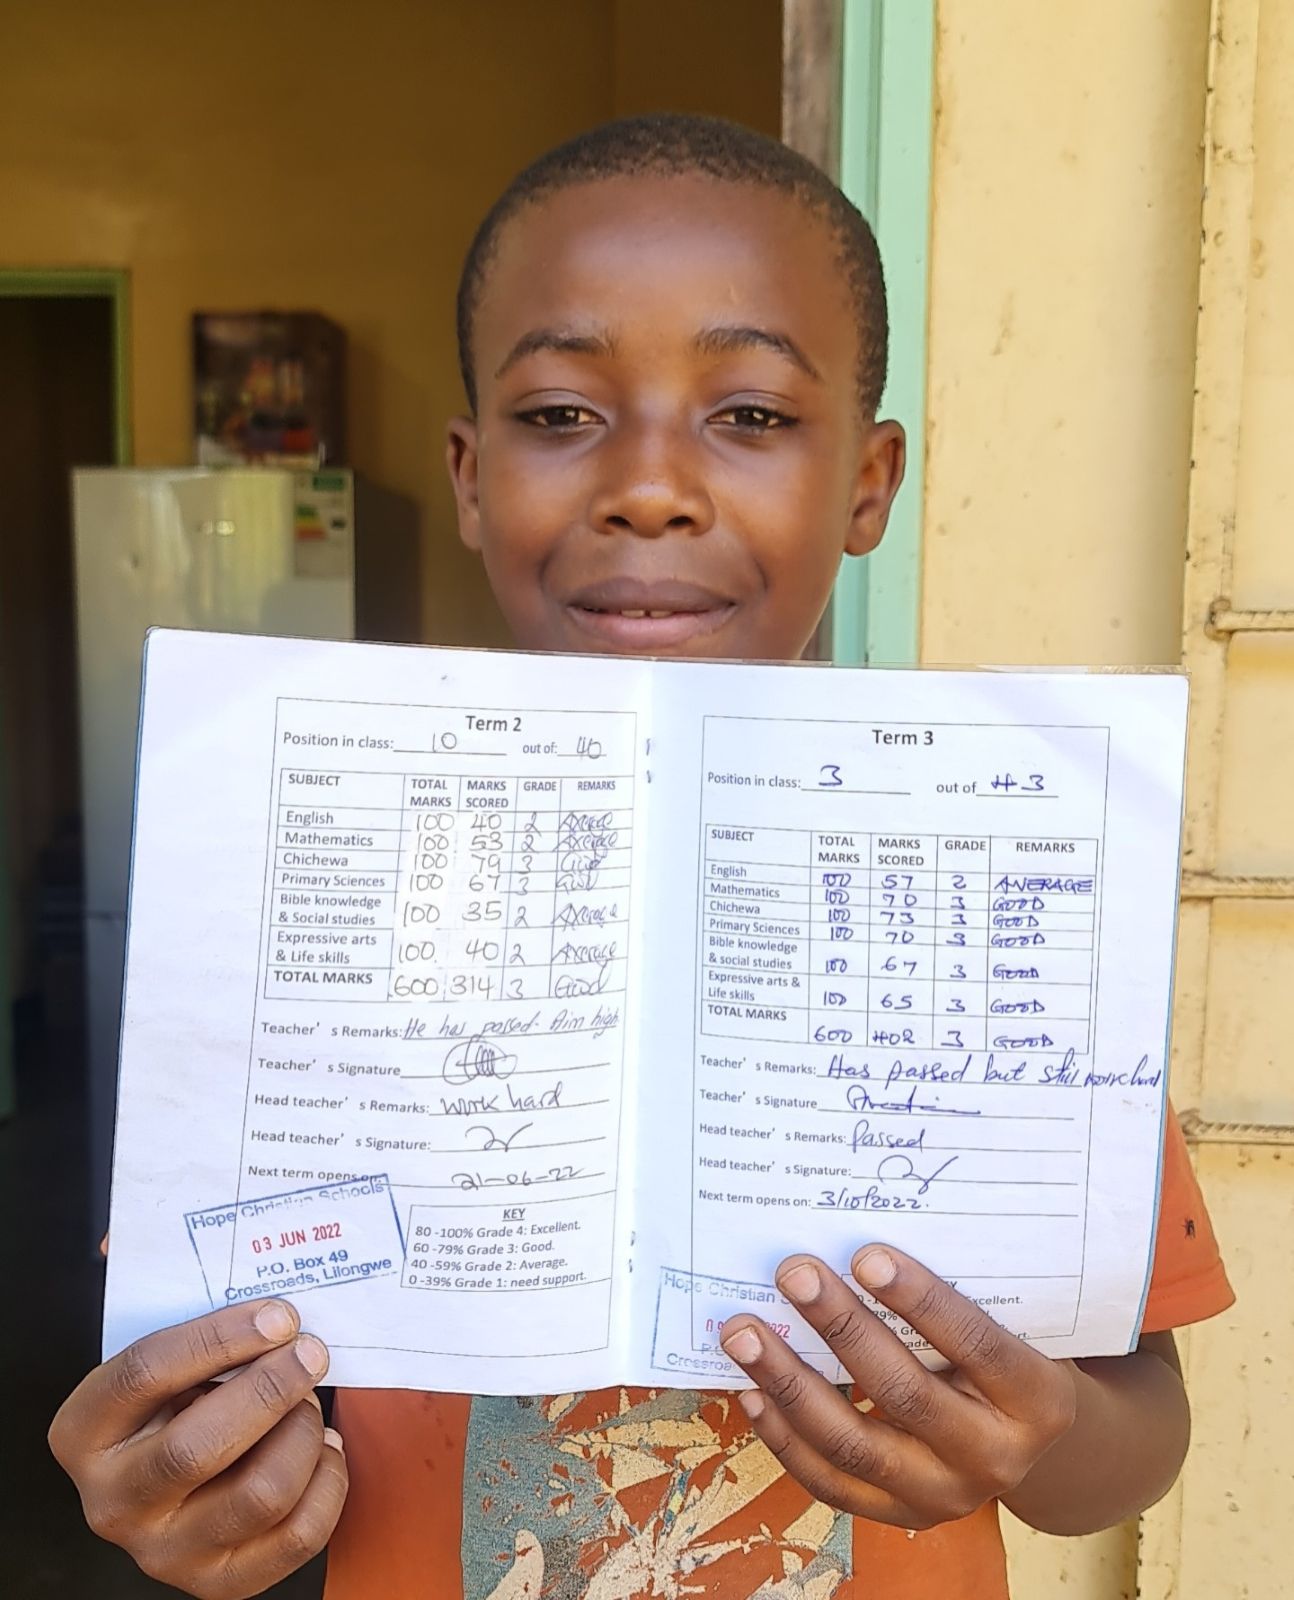 Term 2
Position in class: 10 out of: 40
SUBJECT TOTAL MARKS MARKS SCORED GRADE REMARKS
English 100 40 2 Average
Mathematics 100 53 2 Average
Chichewa 100 79 3 Good
Primary Sciences 100 67 3 Good
Bible knowledge & Social studies 100 35 2 Average
Expressive arts & Life skills 100. 40 2 Average
TOTAL MARKS 600 314 3 Good
Teacher' s Remarks: He has passed. Aim high
Teacher' s Signature
Head teacher' s Remarks: work hard
Head teacher' s Signature:
Next term opens on: 21-06-22
Hope Christian Schools
03 JUN 2022
P.O. Box 49
Crossroads, Lilongwe
KEY
80 -100% Grade 4: Excellent.
60 -79% Grade 3: Good.
40 -59% Grade 2: Average.
0 -39% Grade 1: need support.
Term 3
Position in class: 3 out of 43
SUBJECT TOTAL MARKS MARKS SCORED GRADE REMARKS
English 100 57 2 AVERAGE
Mathematics 100 70 3 GOOD
Chichewa 100 73 3 GOOD
Primary Sciences 100 70 3 GOOD
Bible knowledge & social studies 100 67 3 GOOD
Expressive arts & Life skills 100 65 3 GOOD
TOTAL MARKS 600 402 3 GOOD
Teacher' s Remarks: Has passed but still work hard
Teacher' s Signature
Head teacher' s Remarks: Passed
Head teacher' s Signature:
Next term opens on: 3/10/2022.
Hope Christian
2022
Excellent.